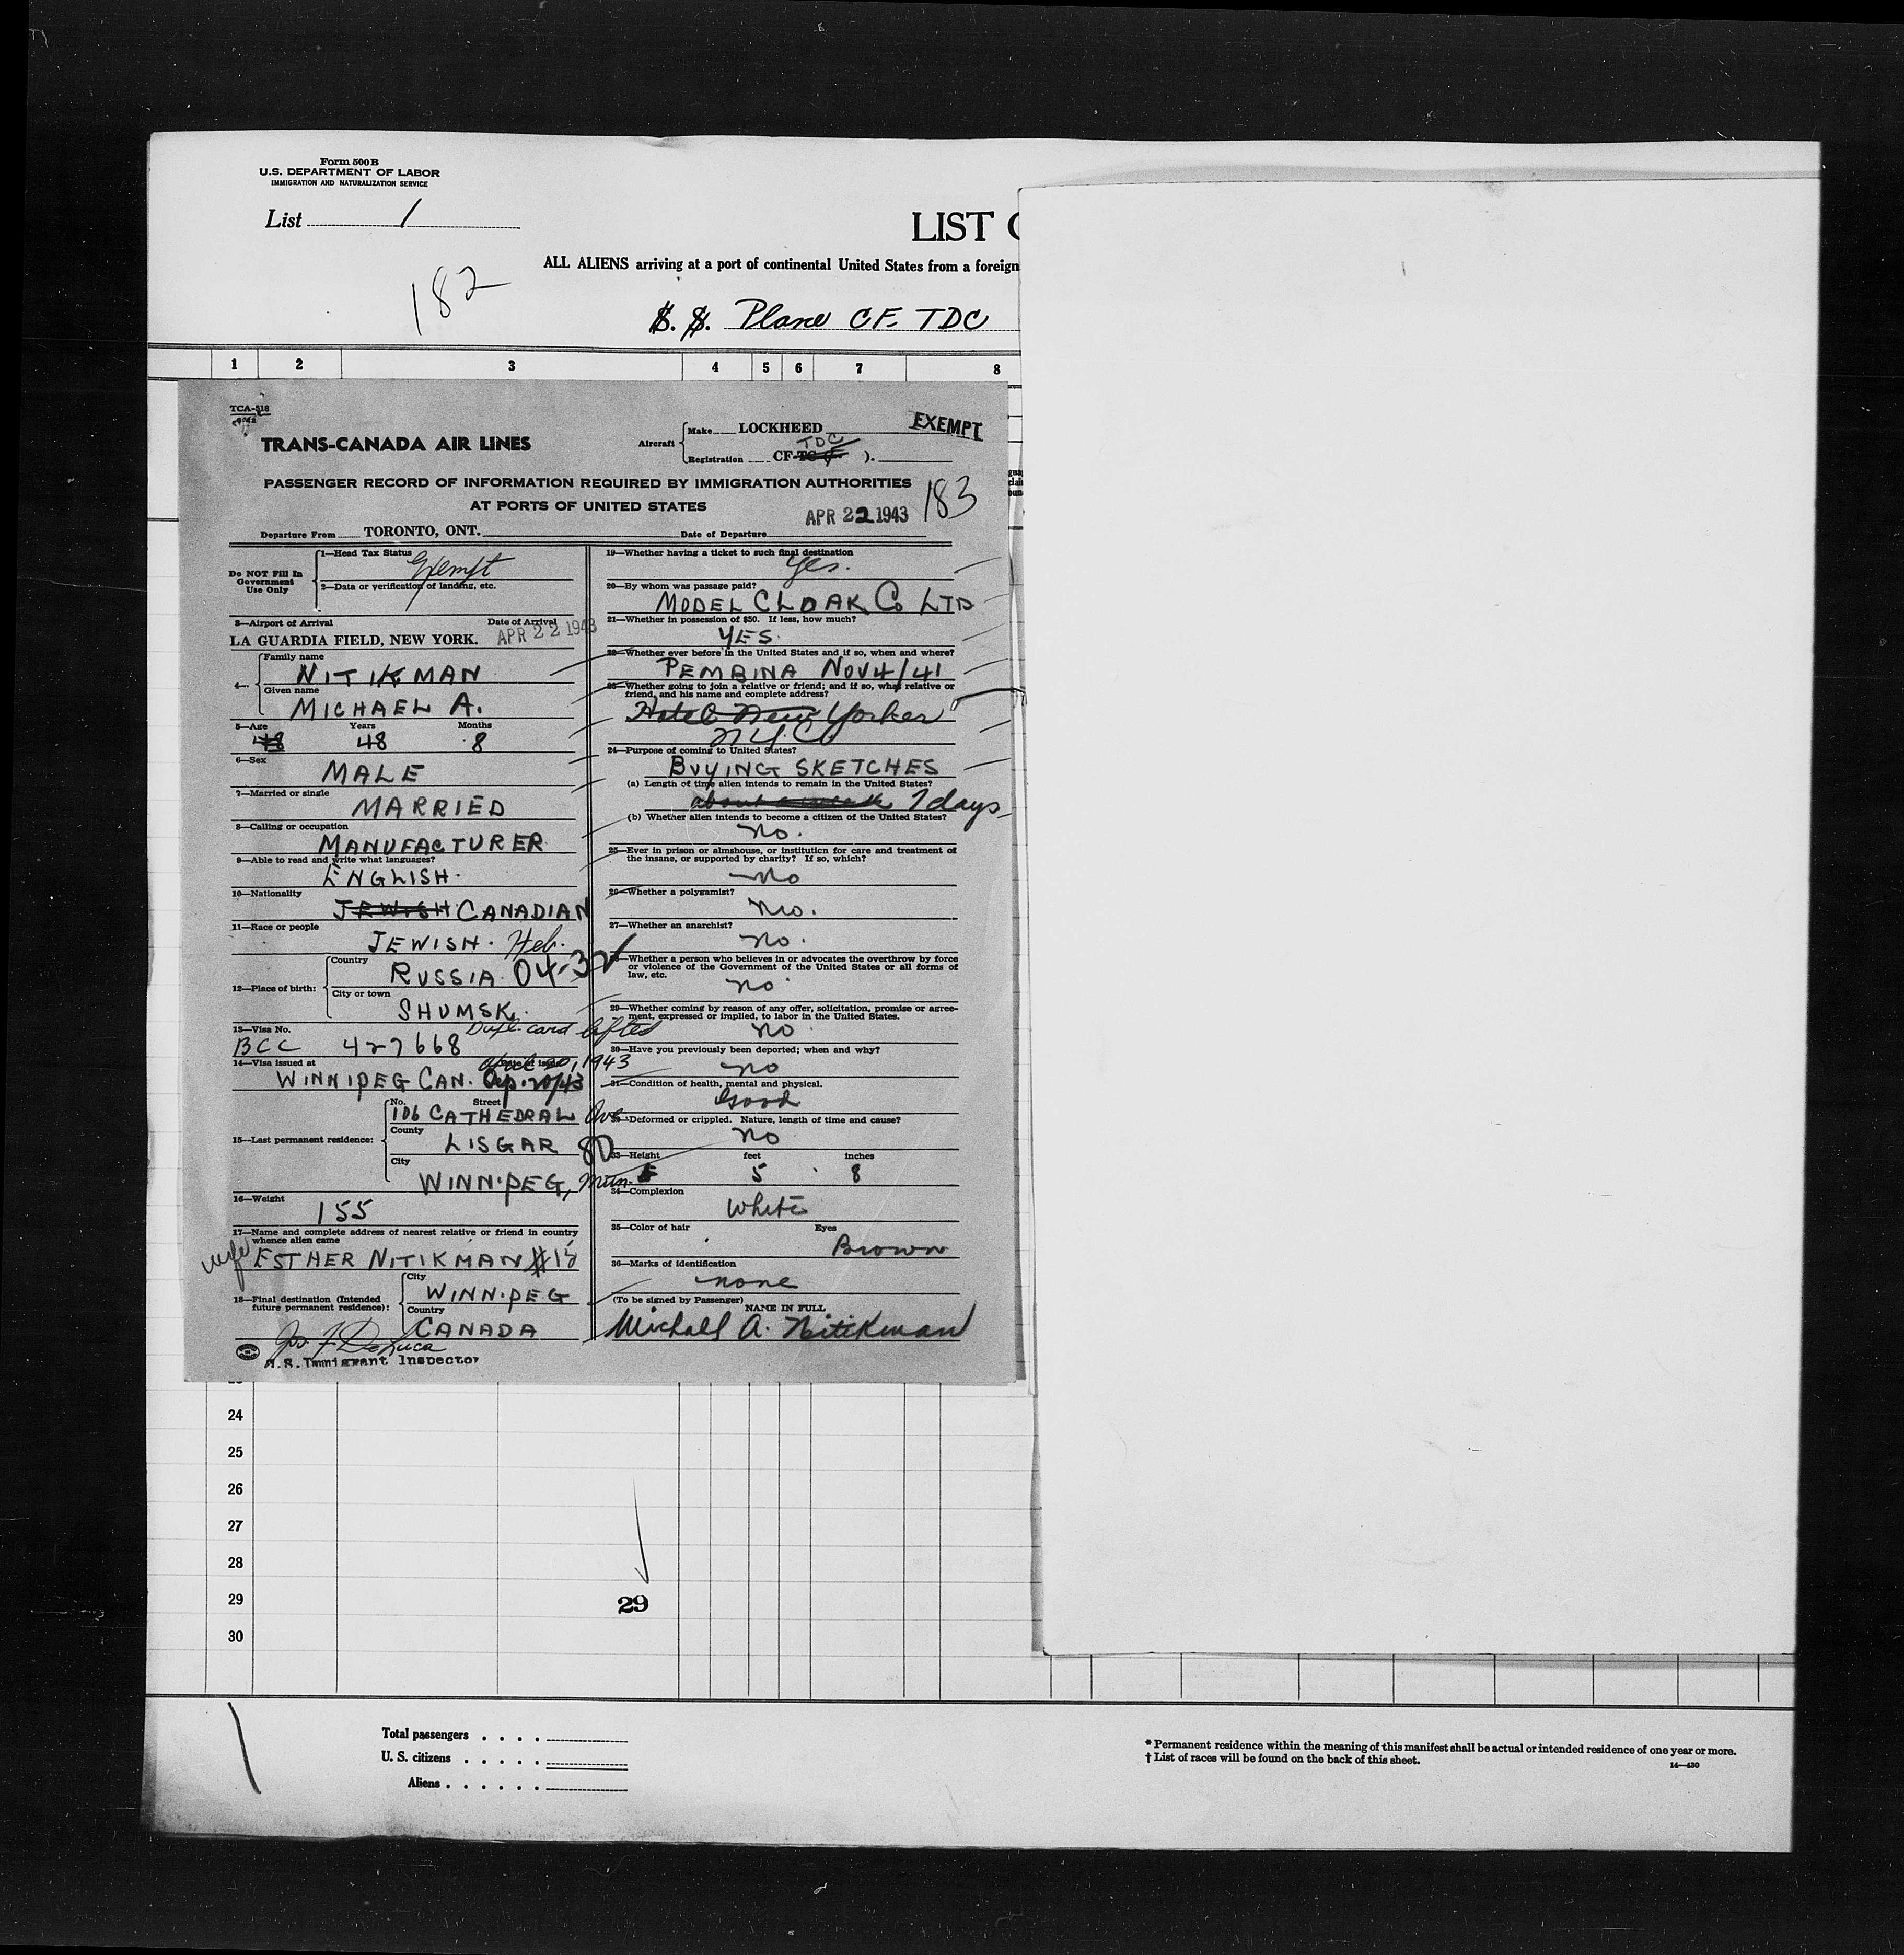 Form 500B
U.S. DEPARTMENT OF LABOR
IMMIGRATION AND NATURALIZATION SERVICE
List 1
LIST
182
ALL ALIENS arriving at a port of continental United States from a foreign
S. S. Plane CF. TDC
1 2 3 4 5 6 7 8
TCA-518
TRANS-CANADA AIR LINES
Aircraft
Make LOCKHEED
EXEMPT
TDC
Registration CF-
PASSENGER RECORD OF INFORMATION REQUIRED BY IMMIGRATION AUTHORITIES
AT PORTS OF UNITED STATES
183
APR 22 1943
Departure From TORONTO, ONT. Date of Departure
Do NOT Fill In Government Use Only
1—Head Tax Status Exempt
2—Data or verification of landing, etc.
3—Airport of Arrival Date of Arrival
LA GUARDIA FIELD, NEW YORK. APR 22 1943
4—
Family name
NITIKMAN
Given name
MICHAEL A.
5—Age Years Months
48 48 8
6—Sex
MALE
7—Married or single
MARRIED
8—Calling or occupation
MANUFACTURER
9—Able to read and write what languages?
ENGLISH.
10—Nationality
JEWISH CANADIAN
11—Race or people
JEWISH. Heb.
12—Place of birth:
Country
RUSSIA 04-32
City or town
SHUMSK.
13—Visa No. Dupl. card lifted
BCC 427668
14—Visa issued at April 20, 1943
WINNIPEG CAN. Ap. 20/43
15—Last permanent residence:
No. Street
106 CATHEDRAL Ave
County
LISGAR 80
City
WINNIPEG, Man.
16—Weight
155
17—Name and complete address of nearest relative or friend in country
whence alien came
wife ESTHER NITIKMAN #15
18—Final destination (Intended
future permanent residence):
City
WINNIPEG
Country
CANADA
Jos F DeLuca
U.S. Immigrant Inspector
19—Whether having a ticket to such final destination
Yes.
20—By whom was passage paid?
MODEL CLOAK Co LTD
21—Whether in possession of $50. If less, how much?
YES.
22—Whether ever before in the United States and if so, when and where?
PEMBINA NOV 4/41
23—Whether going to join a relative or friend; and if so, what relative or
friend, and his name and complete address?
Hotel New Yorker
N.Y.C.
24—Purpose of coming to United States?
BUYING SKETCHES
(a) Length of time alien intends to remain in the United States?
about a week 7 days
(b) Whether alien intends to become a citizen of the United States?
no.
25—Ever in prison or almshouse, or institution for care and treatment of
the insane, or supported by charity? If so, which?
no
26—Whether a polygamist?
no.
27—Whether an anarchist?
no.
28—Whether a person who believes in or advocates the overthrow by force
or violence of the Government of the United States or all forms of
law, etc.
no
29—Whether coming by reason of any offer, solicitation, promise or agree-
ment, expressed or implied, to labor in the United States.
no
30—Have you previously been deported; when and why?
no
31—Condition of health, mental and physical.
Good
32—Deformed or crippled. Nature, length of time and cause?
no
33—Height feet inches
5 8
34—Complexion
White
35—Color of hair Eyes
Brown
36—Marks of identification
none
(To be signed by Passenger)
NAME IN FULL
Michael A. Nitikman
24
25
26
27
28
29
29
30
Total passengers
U. S. citizens
Aliens
* Permanent residence within the meaning of this manifest shall be actual or intended residence of one year or more.
† List of races will be found on the back of this sheet.
14—430